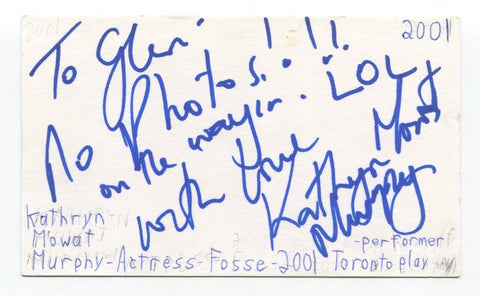 2001
To Glen!!!
No Photos.
on the way in. LOL
with love
Kathryn Mowat
Murphy
Kathryn
Mowat
-performer
Murphy-Actress-Fosse-2001 Toronto play